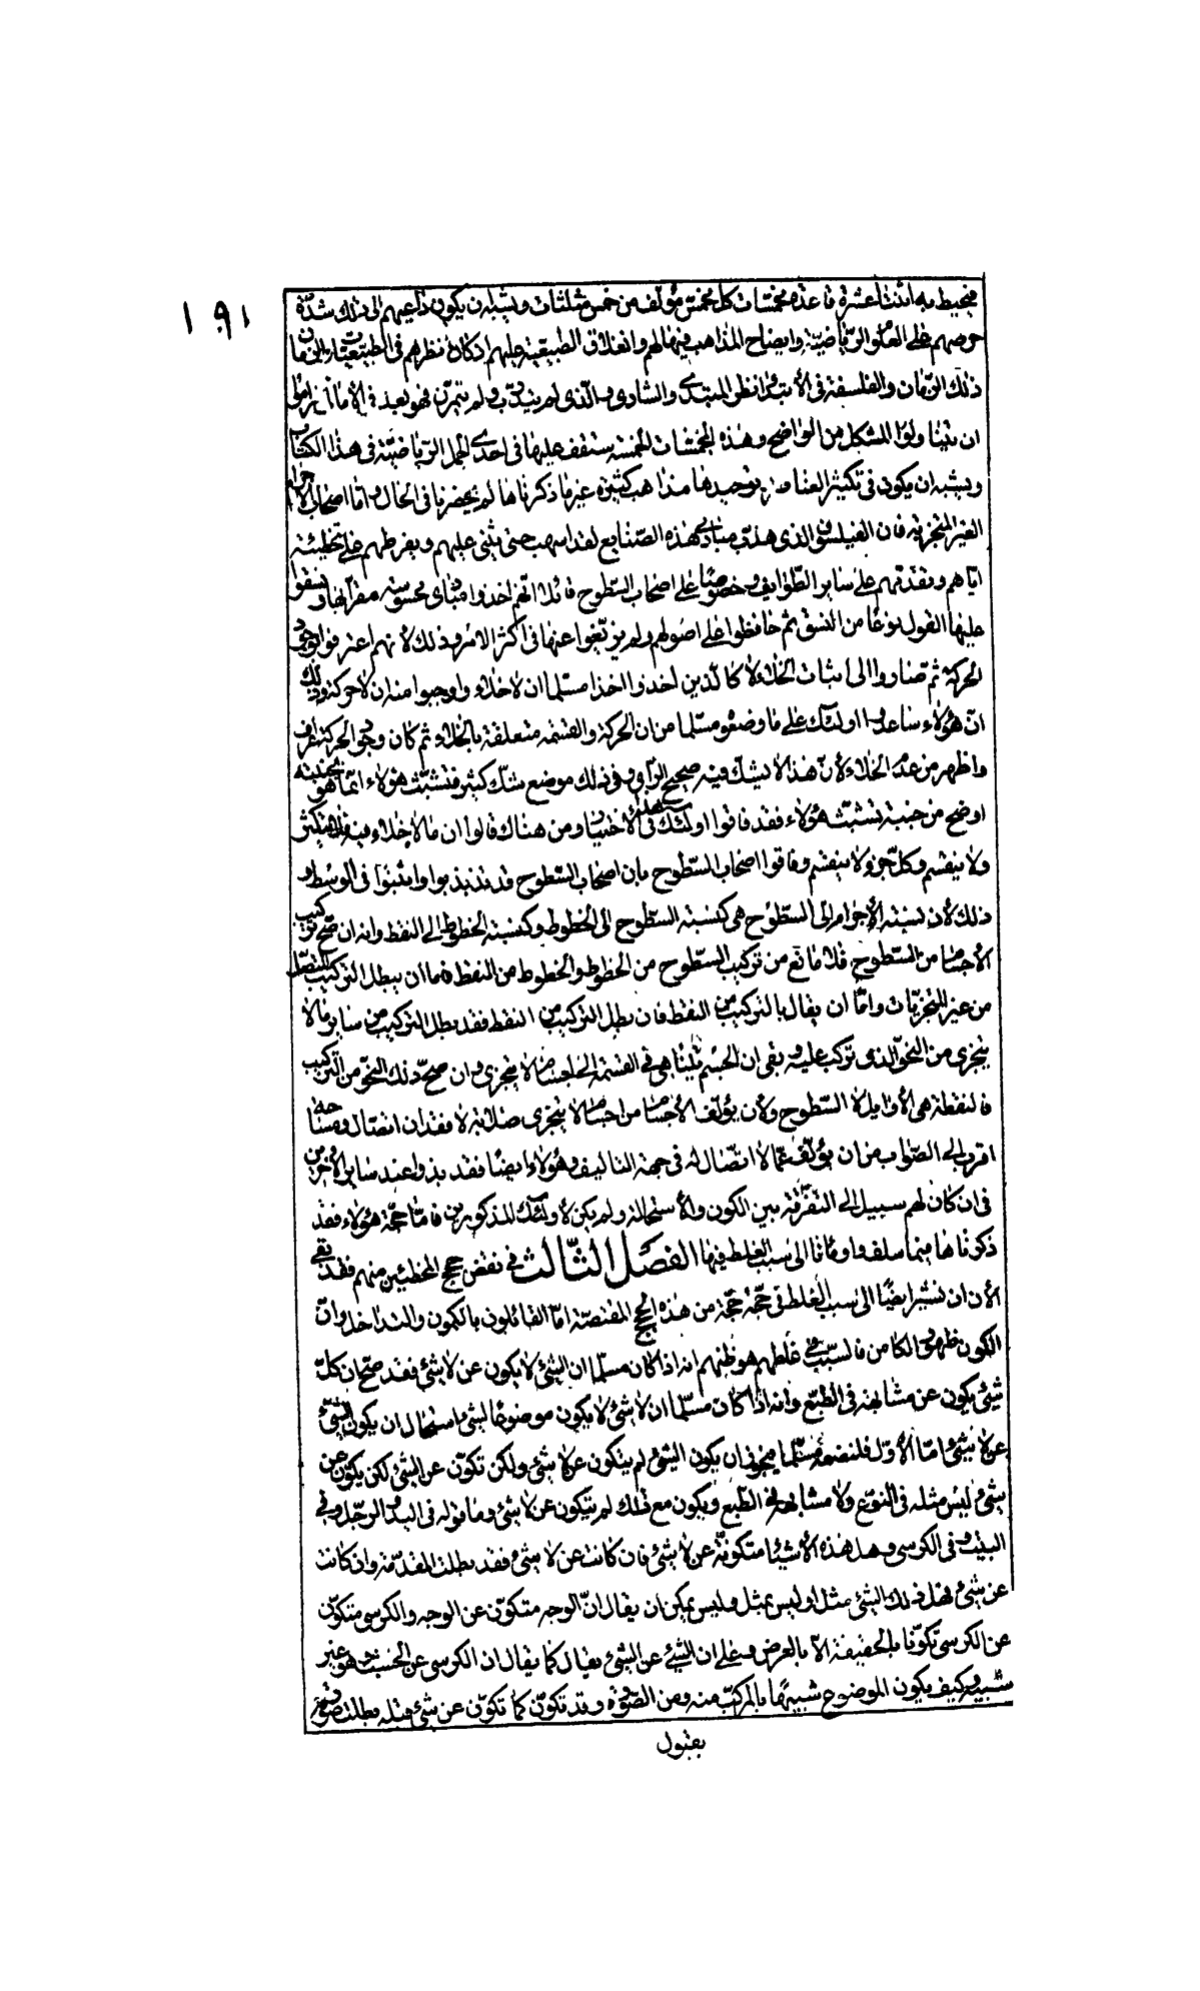 ١٩١
فيحيط به اثنتا عشرة قاعدة مخمسات كل مخمس مؤلف من خمس مثلثات ويشبه ان يكون داعيهم الى ذلك شدّة
حرصهم على العلوم الرياضية وايضاح المذاهب فيها لهم وانغلاق الطبيعية عليهم اذ كان نظرهم في الطبيعيات
ذلك الزمان والفلسفة في الأبتداء نظر المبتدئ والشادي والذي لم يتدرّب ولم يتمرّن فهو بعد في
ان يتيناولوا المشكل من الواضح وهذه المجسمات الخمسة ستقف عليها في احدى الجمل الرياضية في هذا الكتاب
ويشبه ان يكون في تكثير العناصر وتوحيدها مذاهب كثيرة غير ما ذكرناها لم يحضرنا في الحال واما اصحاب الاجرام
الغير المتجزية فان الفيلسوف الذي هذّب مبادي هذه الصنايع لقد اسهب حتى يثني عليهم ويفرطهم على تخطيئته
اياهم ويقدّمهم على ساير الطوايف وخصوصًا على اصحاب السطوح قائلا انهم اخذوا مبادى محسوسة مقرًا بها ونسقوا
عليها القول نوعًا من النسق ثم حافظوا على اصولهم ولم يزيغوا عنها في اكثر الامر وذلك لأنهم اعترفوا بوجود
الحركة ثم صاروا الى اثبات الخلاء لا كالذين اخذوا اخذا مسلما ان لا خلاء واوجبوا منه ان لا حركة وذلك
انّ هؤلاء ساعدوا اولئك على ما وضعوه مسلما من ان الحركة والقسمة متعلقة بالخلاء ثم كان وجود الحركة اعرف
واظهر من عدم الخلاء لأنّ هذا لا يشك فيه صحيح الرأي وفي ذلك موضع شك كثير فتشبث هؤلاء انما هو بجنبة
اوضح من جنبة تشبث هؤلاء فقد فاقوا اولئك في هذا الاختيار ومن هناك قالوا ان ما لا خلاء فيه فلا يتكثر
ولا ينقسم وكل جزو لا ينقسم وفاقوا اصحاب السطوح بان اصحاب السطوح قد تذبذبوا واثبتوا في الوسط و
ذلك لأن نسبة الأجرام الى السطوح هي كنسبة السطوح الى الخطوط وكنسبة الخطوط الى النقط وانه ان صح تركيب
الأجسام من السطوح فلا مانع من تركيب السطوح من الخطوط والخطوط من النقط فاما ان يبطل التركيب
من غير المتجزيات واما ان يقال بالتركيب من النقط فان بطل التركيب من النقط فقد بطل التركيب من ساير ما لا
يتجزى من النحو الذي تركب عليه وبقى ان الجسم يتناهى في القسمة الى اجسام لا يتجزى وان صح ذلك النحو من التركيب
فالنقطة هي الأوايل لا السطوح ولأن يؤلف الأجسام من اجسام لا يتجزى صلابة لا فقدان اتصال ومساحة
اقرب الى الصواب من ان يؤلف مما لا اتصال له في جهة التاليف وهؤلاء ايضًا فقد بذوا عند ساير الآخرين
في ان كان لهم سبيل الى التفرقة بين الكون والأستحالة ولم يكن لأولئك المذكورين فامّا حجة هؤلاء فقد
ذكرناها فيما سلف واومأنا الى سبب الغلط فيها الفصل الثالث في نقض حجج المخطئين منهم فقد بقي
الأن ان نشير ايضًا الى سبب الغلط في حجة حجة من هذه الحجج المقتصة امّا القائلون بالكمون والتداخل وانّ
الكون ظهور الكامن فالسبب في غلطهم هو ظنهم انه اذا كان مسلما ان الشئ لا يكون عن لا شئ فقد صح ان كل
شئ يكون عن مشابهه في الطبع وانه اذا كان مسلما ان لا شئ لا يكون موضوعا لشئ استحال ان يكون الشئ
عن لا شئ امّا الأول فلنضعه مسلما فيجوز ان يكون الشئ لم يتكون عن لا شئ ولكن تكوّن عن الشئ لكن يكون عن
شئ ليس مثله في النوع ولا مشابهه في الطبع ويكون مع ذلك لم يتكون عن لا شئ وما قوله في اليد والرجل وفي
البيت وفي الكرسي وهل هذه الأشياء متكونة عن لا شئ فان كانت عن لا شئ فقد بطلت المقدّمة وان كانت
عن شئ فهل ذلك الشئ مثل او ليس بمثل وليس يمكن ان يقال انّ الوجه متكوّن عن الوجه والكرسي متكوّن
عن الكرسي تكوّنا بالحقيقة الا بالعرض وعلى ان الشئ عن الشئ يقال كما يقال ان الكرسي عن الخشب وهو غير
شبيهه وكيف يكون الموضوع شبيهًا بالمركب منه ومن الصورة وقد تكوّن كما تكوّن عن شئ قبله بطلت صورته
بقبول